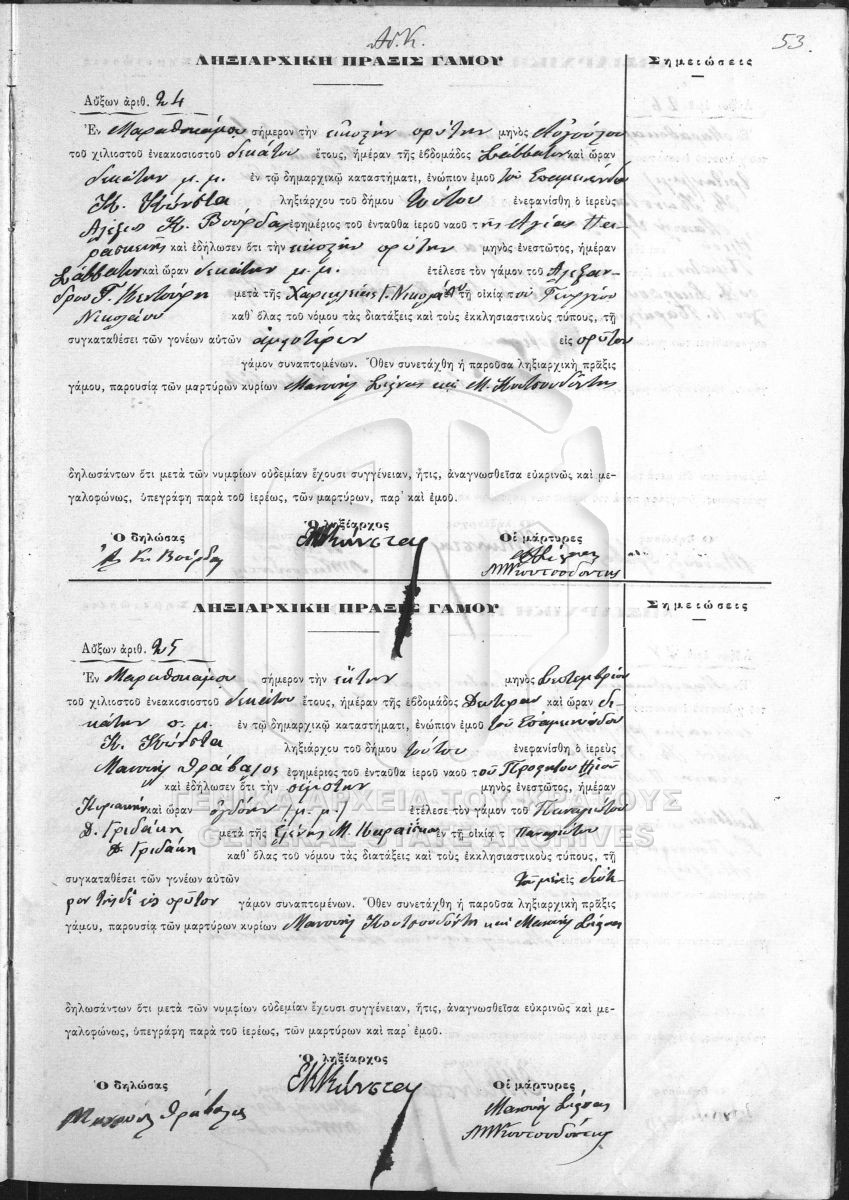 53.
ΛΗΞΙΑΡΧΙΚΗ ΠΡΑΞΙΣ ΓΑΜΟΥ
Σημειώσεις
Αὔξων ἀριθ. 24
Ἐν Μαραθοκάμπῳ σήμερον τὴν εἰκοστὴν πρώτην μηνὸς Αὐγούστου
τοῦ χιλιοστοῦ ἐνεακοσιοστοῦ δεκάτου ἔτους, ἡμέραν τῆς ἑβδομάδος Σάββατον καὶ ὥραν
δεκάτην μ. μ. ἐν τῷ δημαρχικῷ καταστήματι, ἐνώπιον ἐμοῦ τοῦ Ἐπαμεινώνδου
Κ. Κώνστα ληξιάρχου τοῦ δήμου τούτου ἐνεφανίσθη ὁ ἱερεὺς
Ἀλέξιος Κ. Βούρδας ἐφημέριος τοῦ ἐνταῦθα ἱεροῦ ναοῦ τῆς Ἁγίας Πα-
ρασκευῆς καὶ ἐδήλωσεν ὅτι τὴν εἰκοστὴν πρώτην μηνὸς ἐνεστῶτος, ἡμέραν
Σάββατον καὶ ὥραν δεκάτην μ. μ. ἐτέλεσε τὸν γάμον τοῦ Ἀλεξάν-
δρου Γ. Κεντούρη μετὰ τῆς Χαρικλείας Γ. Νικολάου ἐν τῇ οἰκίᾳ τοῦ Γεωργίου
Νικολάου καθ᾽ ὅλας τοῦ νόμου τὰς διατάξεις καὶ τοὺς ἐκκλησιαστικοὺς τύπους, τῇ
συγκαταθέσει τῶν γονέων αὐτῶν ἀμφοτέρων εἰς πρῶτον
γάμον συναπτομένων. Ὅθεν συνετάχθη ἡ παροῦσα ληξιαρχικὴ πρᾶξις
γάμου, παρουσίᾳ τῶν μαρτύρων κυρίων Μανουὴλ καὶ Μ. Κουτσουδόντης
δηλωσάντων ὅτι μετὰ τῶν νυμφίων οὐδεμίαν ἔχουσι συγγένειαν, ἥτις, ἀναγνωσθεῖσα εὐκρινῶς καὶ με-
γαλοφώνως, ὑπεγράφη παρὰ τοῦ ἱερέως, τῶν μαρτύρων, παρ᾽ καὶ ἐμοῦ.
Ὁ ληξίαρχος
Ὁ δηλώσας Οἱ μάρτυρες
Κ. Βούρδας ΕΚΚώνστας
ΜΚουτσουδόντης
ΛΗΞΙΑΡΧΙΚΗ ΠΡΑΞΙΣ ΓΑΜΟΥ
Σημειώσεις
Αὔξων ἀριθ. 25
Ἐν Μαραθοκάμπῳ σήμερον τὴν ἕκτην μηνὸς Σεπτεμβρίου
τοῦ χιλιοστοῦ ἐνεακοσιοστοῦ δεκάτου ἔτους, ἡμέραν τῆς ἑβδομάδος Δευτέραν καὶ ὥραν δε-
κάτην π. μ. ἐν τῷ δημαρχικῷ καταστήματι, ἐνώπιον ἐμοῦ τοῦ Ἐπαμεινώνδου
Κ. Κώνστα ληξιάρχου τοῦ δήμου τούτου ἐνεφανίσθη ὁ ἱερεὺς
Μανουὴλ Θράβαλος ἐφημέριος τοῦ ἐνταῦθα ἱεροῦ ναοῦ τοῦ Προφήτου Ἠλιοῦ
καὶ ἐδήλωσεν ὅτι τὴν πέμπτην μηνὸς ἐνεστῶτος, ἡμέραν
Κυριακὴν καὶ ὥραν ὀγδόην μ. μ. ἐτέλεσε τὸν γάμον τοῦ Παναγιώτου
Δ. Γριδάκη μετὰ τῆς Ἑλένης Μ. Καραΐσκου ἐν τῇ οἰκίᾳ τ Παναγιώτου
Δ. Γριδάκη καθ᾽ ὅλας τοῦ νόμου τὰς διατάξεις καὶ τοὺς ἐκκλησιαστικοὺς τύπους, τῇ
συγκαταθέσει τῶν γονέων αὐτῶν τοῦ μὲν εἰς δεύτε-
ρον τῆς δὲ εἰς πρῶτον γάμον συναπτομένων. Ὅθεν συνετάχθη ἡ παροῦσα ληξιαρχικὴ πρᾶξις
γάμου, παρουσίᾳ τῶν μαρτύρων κυρίων Μανουὴλ Κουτσουδόντη καὶ Μανουὴλ
δηλωσάντων ὅτι μετὰ τῶν νυμφίων οὐδεμίαν ἔχουσι συγγένειαν, ἥτις, ἀναγνωσθεῖσα εὐκρινῶς καὶ με-
γαλοφώνως, ὑπεγράφη παρὰ τοῦ ἱερέως, τῶν μαρτύρων καὶ παρ᾽ ἐμοῦ.
Ὁ ληξίαρχος
Ὁ δηλώσας Οἱ μάρτυρες
ΕΚΚώνστας
Μανουὴλ Θράβαλος Μανουὴλ
ΜΚουτσουδόντης
ΓΕΝΙΚΑ ΑΡΧΕΙΑ ΤΟΥ ΚΡΑΤΟΥΣ
GENERAL STATE ARCHIVES